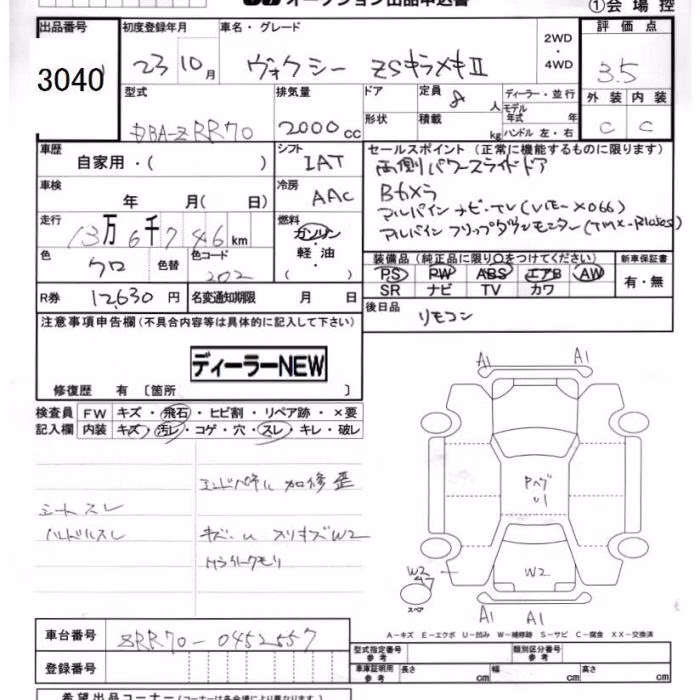 オークション出品申込書
①会場控
出品番号 初度登録年月 車名・グレード 2WD・4WD 評価点
3040 23 10月 ヴォクシー ZSキラメキII 3.5
型式 排気量 ドア 定員 8人 ディーラー・並行 外装 内装
DBA-ZRR70 2000cc 形状 積載 kg モデル年式 年 ハンドル 左・右 C C
車歴 自家用・( ) シフト IAT セールスポイント (正常に機能するものに限ります)
両側パワースライドドア
車検 年 月( 日) 冷房 AAC Bカメラ
アルパイン ナビ・TV (VIE-X066)
走行 13万6千746km 燃料 ガソリン・軽油・( )
アルパイン フリップダウンモニター
色 クロ 色替 色コード 202
装備品 (純正品に限り○をつけてください) 新車保証書
PS PW ABS エアB AW 有・無
SR ナビ TV カワ
R券 12,630円 名変通知期限 月 日
後日品 リモコン
注意事項申告欄 (不具合内容等は具体的に記入して下さい)
ディーラーNEW
修復歴 有 〔箇所 〕
検査員 FW キズ・飛石・ヒビ割・リペア跡・×要
記入欄 内装 キズ・汚レ・コゲ・穴・スレ・キレ・破レ
エンドパネル 加修歪
シートスレ
ハンドルスレ キズ・U スリキズW2
ヘライトクモリ
A1 A1
U1
W2 W2
スペア
A1 A1
A−キズ E−エクボ U−凹み W−補修跡 S−サビ C−腐食 XX−交換済
車台番号 ZRR70-0452557
型式指定番号 参考 類別区分番号 参考
登録番号 車庫証明用 参考 長さ cm 幅 cm 高さ cm
希望出品コーナー